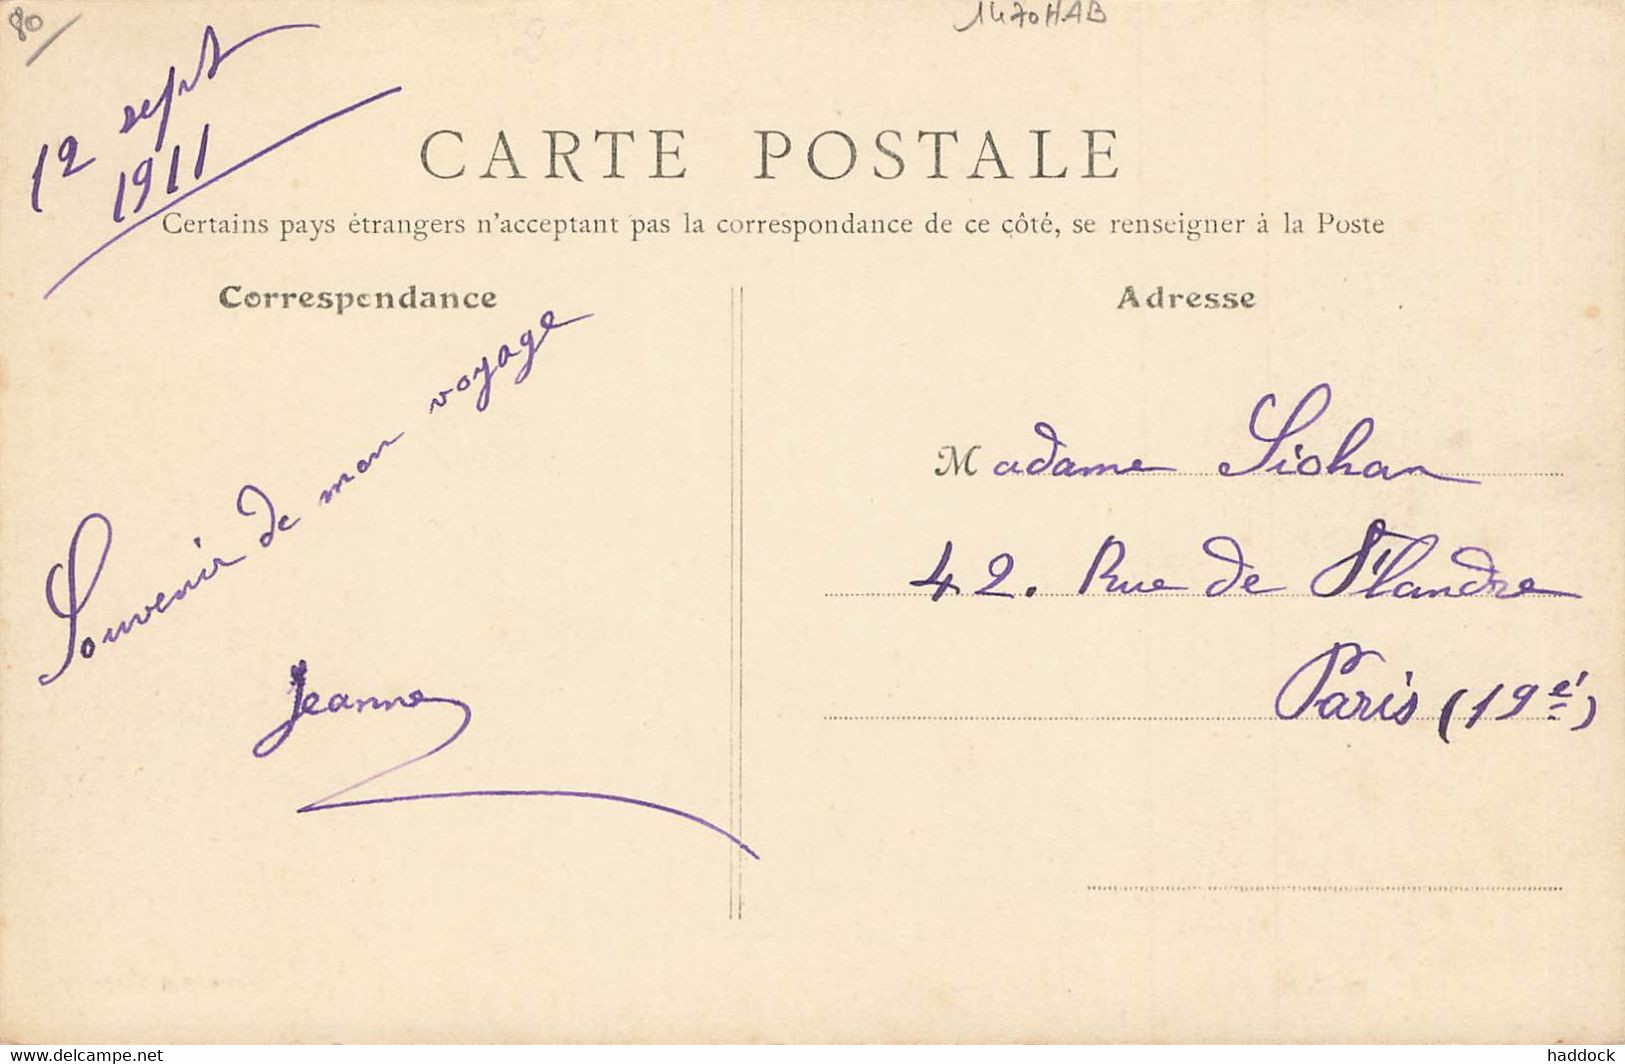 80
1470HAB
12 sept
1911
CARTE POSTALE
Certains pays étrangers n'acceptant pas la correspondance de ce côté, se renseigner à la Poste
Correspondance
Souvenir de mon voyage
Jeanne
Adresse
Madame Siohan
42. Rue de Flandre
Paris (19e)
www.delcampe.net
haddock